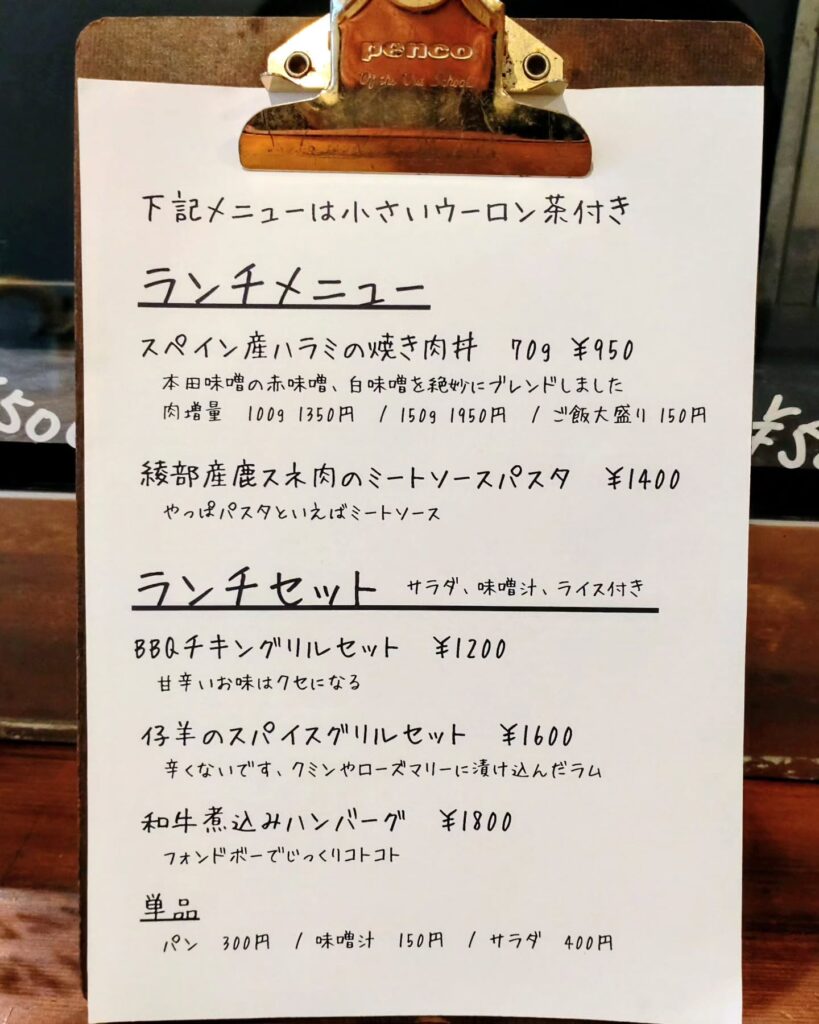 penco
下記メニューは小さいウーロン茶付き
ランチメニュー
スペイン産ハラミの焼き肉丼 70g ¥950
本田味噌の赤味噌、白味噌を絶妙にブレンドしました
肉増量 100g 1350円 / 150g 1950円 / ご飯大盛り 150円
綾部産鹿スネ肉のミートソースパスタ ¥1400
やっぱパスタといえばミートソース
ランチセット サラダ、味噌汁、ライス付き
BBQチキングリルセット ¥1200
甘辛いお味はクセになる
仔羊のスパイスグリルセット ¥1600
辛くないです、クミンやローズマリーに漬け込んだラム
和牛煮込みハンバーグ ¥1800
フォンドボーでじっくりコトコト
単品
パン 300円 / 味噌汁 150円 / サラダ 400円